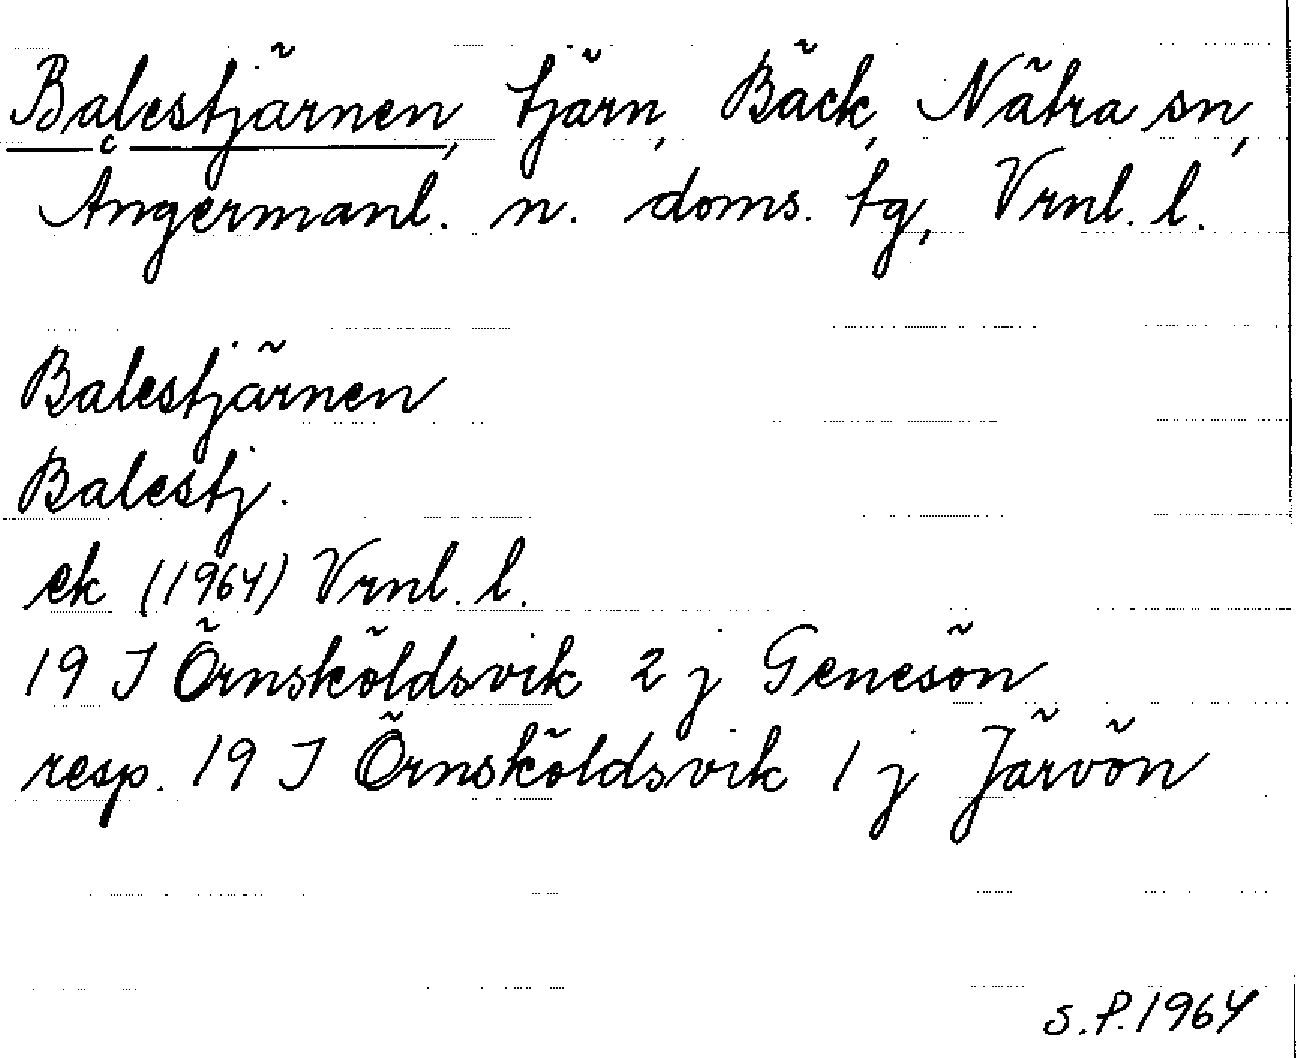 Balestjärnen, tjärn, Bäck, Nätra sn,
Ångermanl. n. doms. tg, Vrnl. l.
Balestjärnen
Balestj.
ek (1964) Vrnl. l.
19 J Örnsköldsvik 2 j Genesön
resp. 19 J Örnsköldsvik 1 j Järvön
S.P. 1964